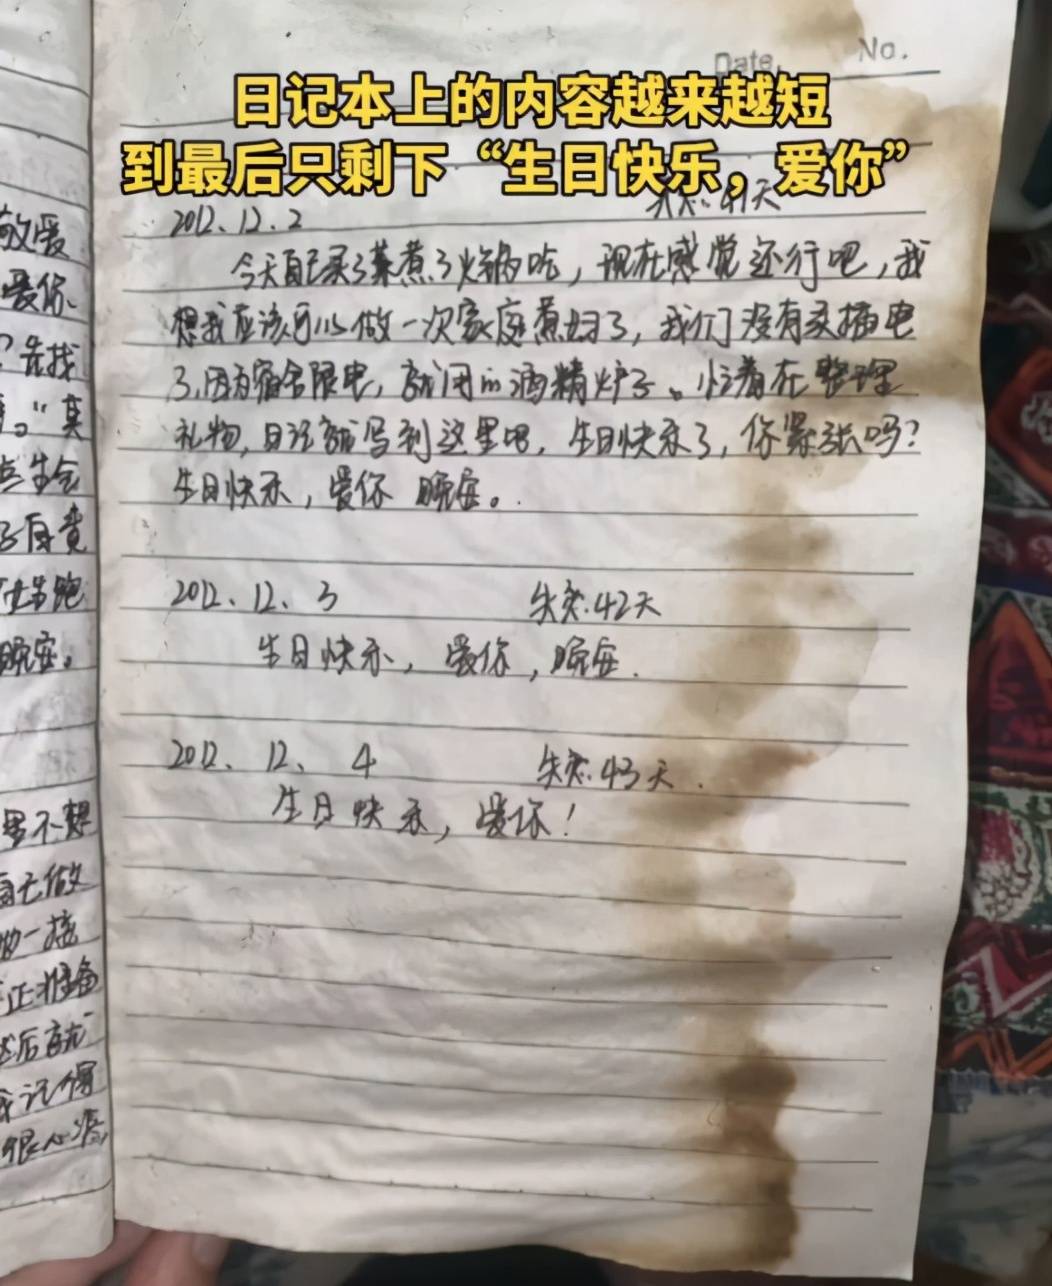 Date. No.
日记本上的内容越来越短
到最后只剩下“生日快乐，爱你”
2012.12.2 失恋.41天
今天自己买了菜煮了火锅吃，现在感觉还行吧，我
想我应该可以做一次家庭煮妇了，我们没有买插电
了，因为宿舍限电，就用的酒精炉子。忙着在整理
礼物，日记就写到这里吧，生日快乐了，你紧张吗？
生日快乐，爱你 晚安。
2012、12、3 失恋.42天
生日快乐，爱你，晚安.
2012、12、4 失恋.43天.
生日快乐，爱你！
爱你、
先找
。”真
生会
自责
跑
晚安。
里不想
每天做
一接
正准备
然后就
记得
很心疼，